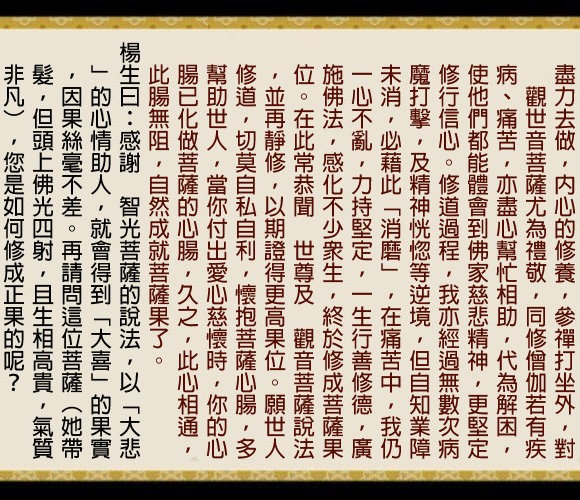 盡力去做，內心的修養，參禪打坐外，對
觀世音菩薩尤為禮敬，同修僧伽若有疾
病、痛苦，亦盡心幫忙相助，代為解困，
使他們都能體會到佛家慈悲精神，更堅定
修行信心。修道過程，我亦經過無數次病
魔打擊，及精神恍惚等逆境，但自知業障
未消，必藉此「消磨」，在痛苦中，我仍
一心不亂，力持堅定，一生行善修德，廣
施佛法，感化不少眾生，終於修成菩薩果
位。在此常恭聞　世尊及　觀音菩薩說法
，並再靜修，以期證得更高果位。願世人
修道，切莫自私自利，懷抱菩薩心腸，多
幫助世人，當你付出愛心慈懷時，你的心
腸已化做菩薩的心腸，久之，此心相通，
此腸無阻，自然成就菩薩果了。
楊生曰：感謝　智光菩薩的說法，以「大悲
」的心情助人，就會得到「大喜」的果實
，因果絲毫不差。再請問這位菩薩（她帶
髮，但頭上佛光四射，且生相高貴，氣質
非凡），您是如何修成正果的呢？